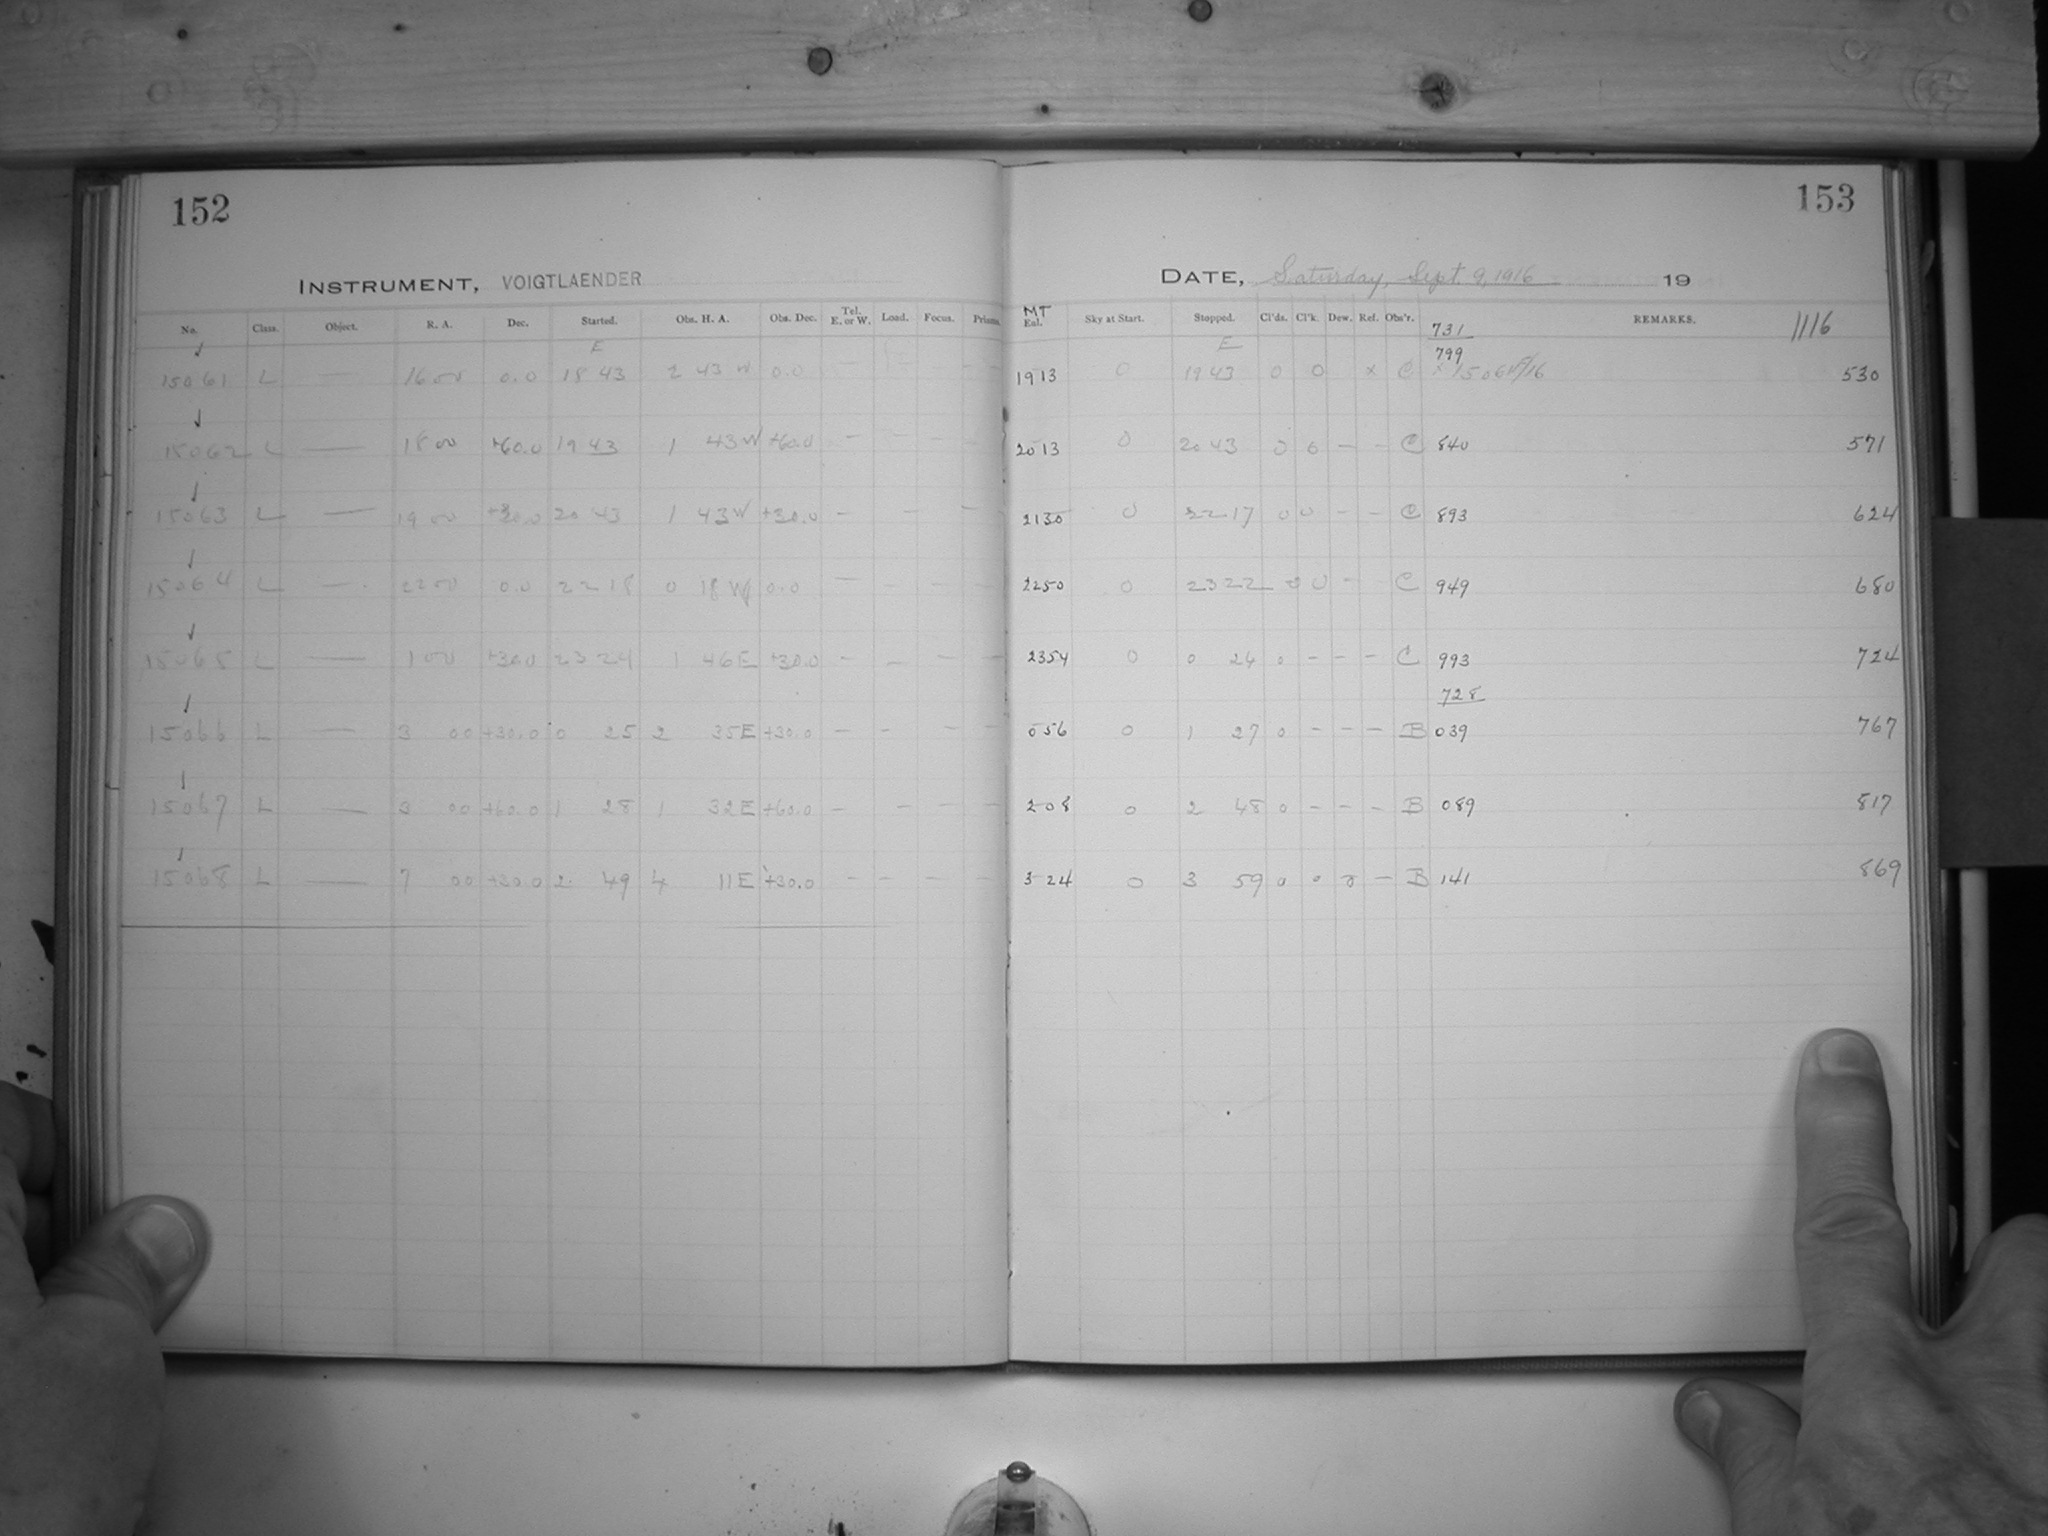 152
153
INSTRUMENT, VOIGTLAENDER
DATE, Saturday, Sept. 9, 1916 19
No. Class. Object. R. A. Dec. Started. Obs. H. A. Obs. Dec. Tel. E. or W. Load. Focus. Prisms. MT Eql. Sky at Start. Stopped. Cl'ds. Cl'k. Dew. Ref. Obs'r. REMARKS. 1116
731
E E 799
15061 L — 16 00 0.0 18 43 2 43 W 0.0 — — — — 1913 0 19 43 0 0 x C x 530
15062 L — 18 00 +60.0 19 43 1 43 W +60.0 — — — — 2013 0 20 43 0 0 — — C 840 571
15063 L — 19 00 +30.0 20 43 1 43 W +30.0 — — — — 2130 0 22 17 0 0 — — C 893 624
15064 L — 22 00 0.0 22 18 0 18 W 0.0 — — — — 2250 0 23 22 0 0 — C 949 680
15065 L — 1 00 +30.0 23 24 1 46 E +30.0 — — — — 2354 0 0 24 0 — — — C 993 724
728
15066 L — 3 00 +30.0 0 25 2 35 E +30.0 — — — — 056 0 1 27 0 — — — B 039 767
15067 L — 3 00 +60.0 1 28 1 32 E +60.0 — — — — 208 0 2 48 0 — — — B 089 817
15068 L — 7 00 +30.0 2 49 4 11 E +30.0 — — — — 324 0 3 59 0 0 0 — B 141 869